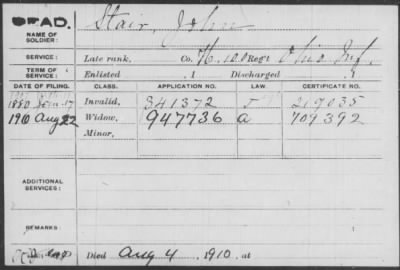 DEAD.
NAME OF SOLDIER: Stair, John
SERVICE: Late rank, Co. H, 100 Reg't Ohio Inf.
TERM OF SERVICE: Enlisted , 1 Discharged , 1
DATE OF FILING. CLASS. APPLICATION NO. LAW. CERTIFICATE NO.
1880 Jan. 17 Invalid, 341372 219035
1910 Aug 22 Widow, 947736 a 709392
Minor,
ADDITIONAL SERVICES:
REMARKS:
Died Aug 4, 1910, at